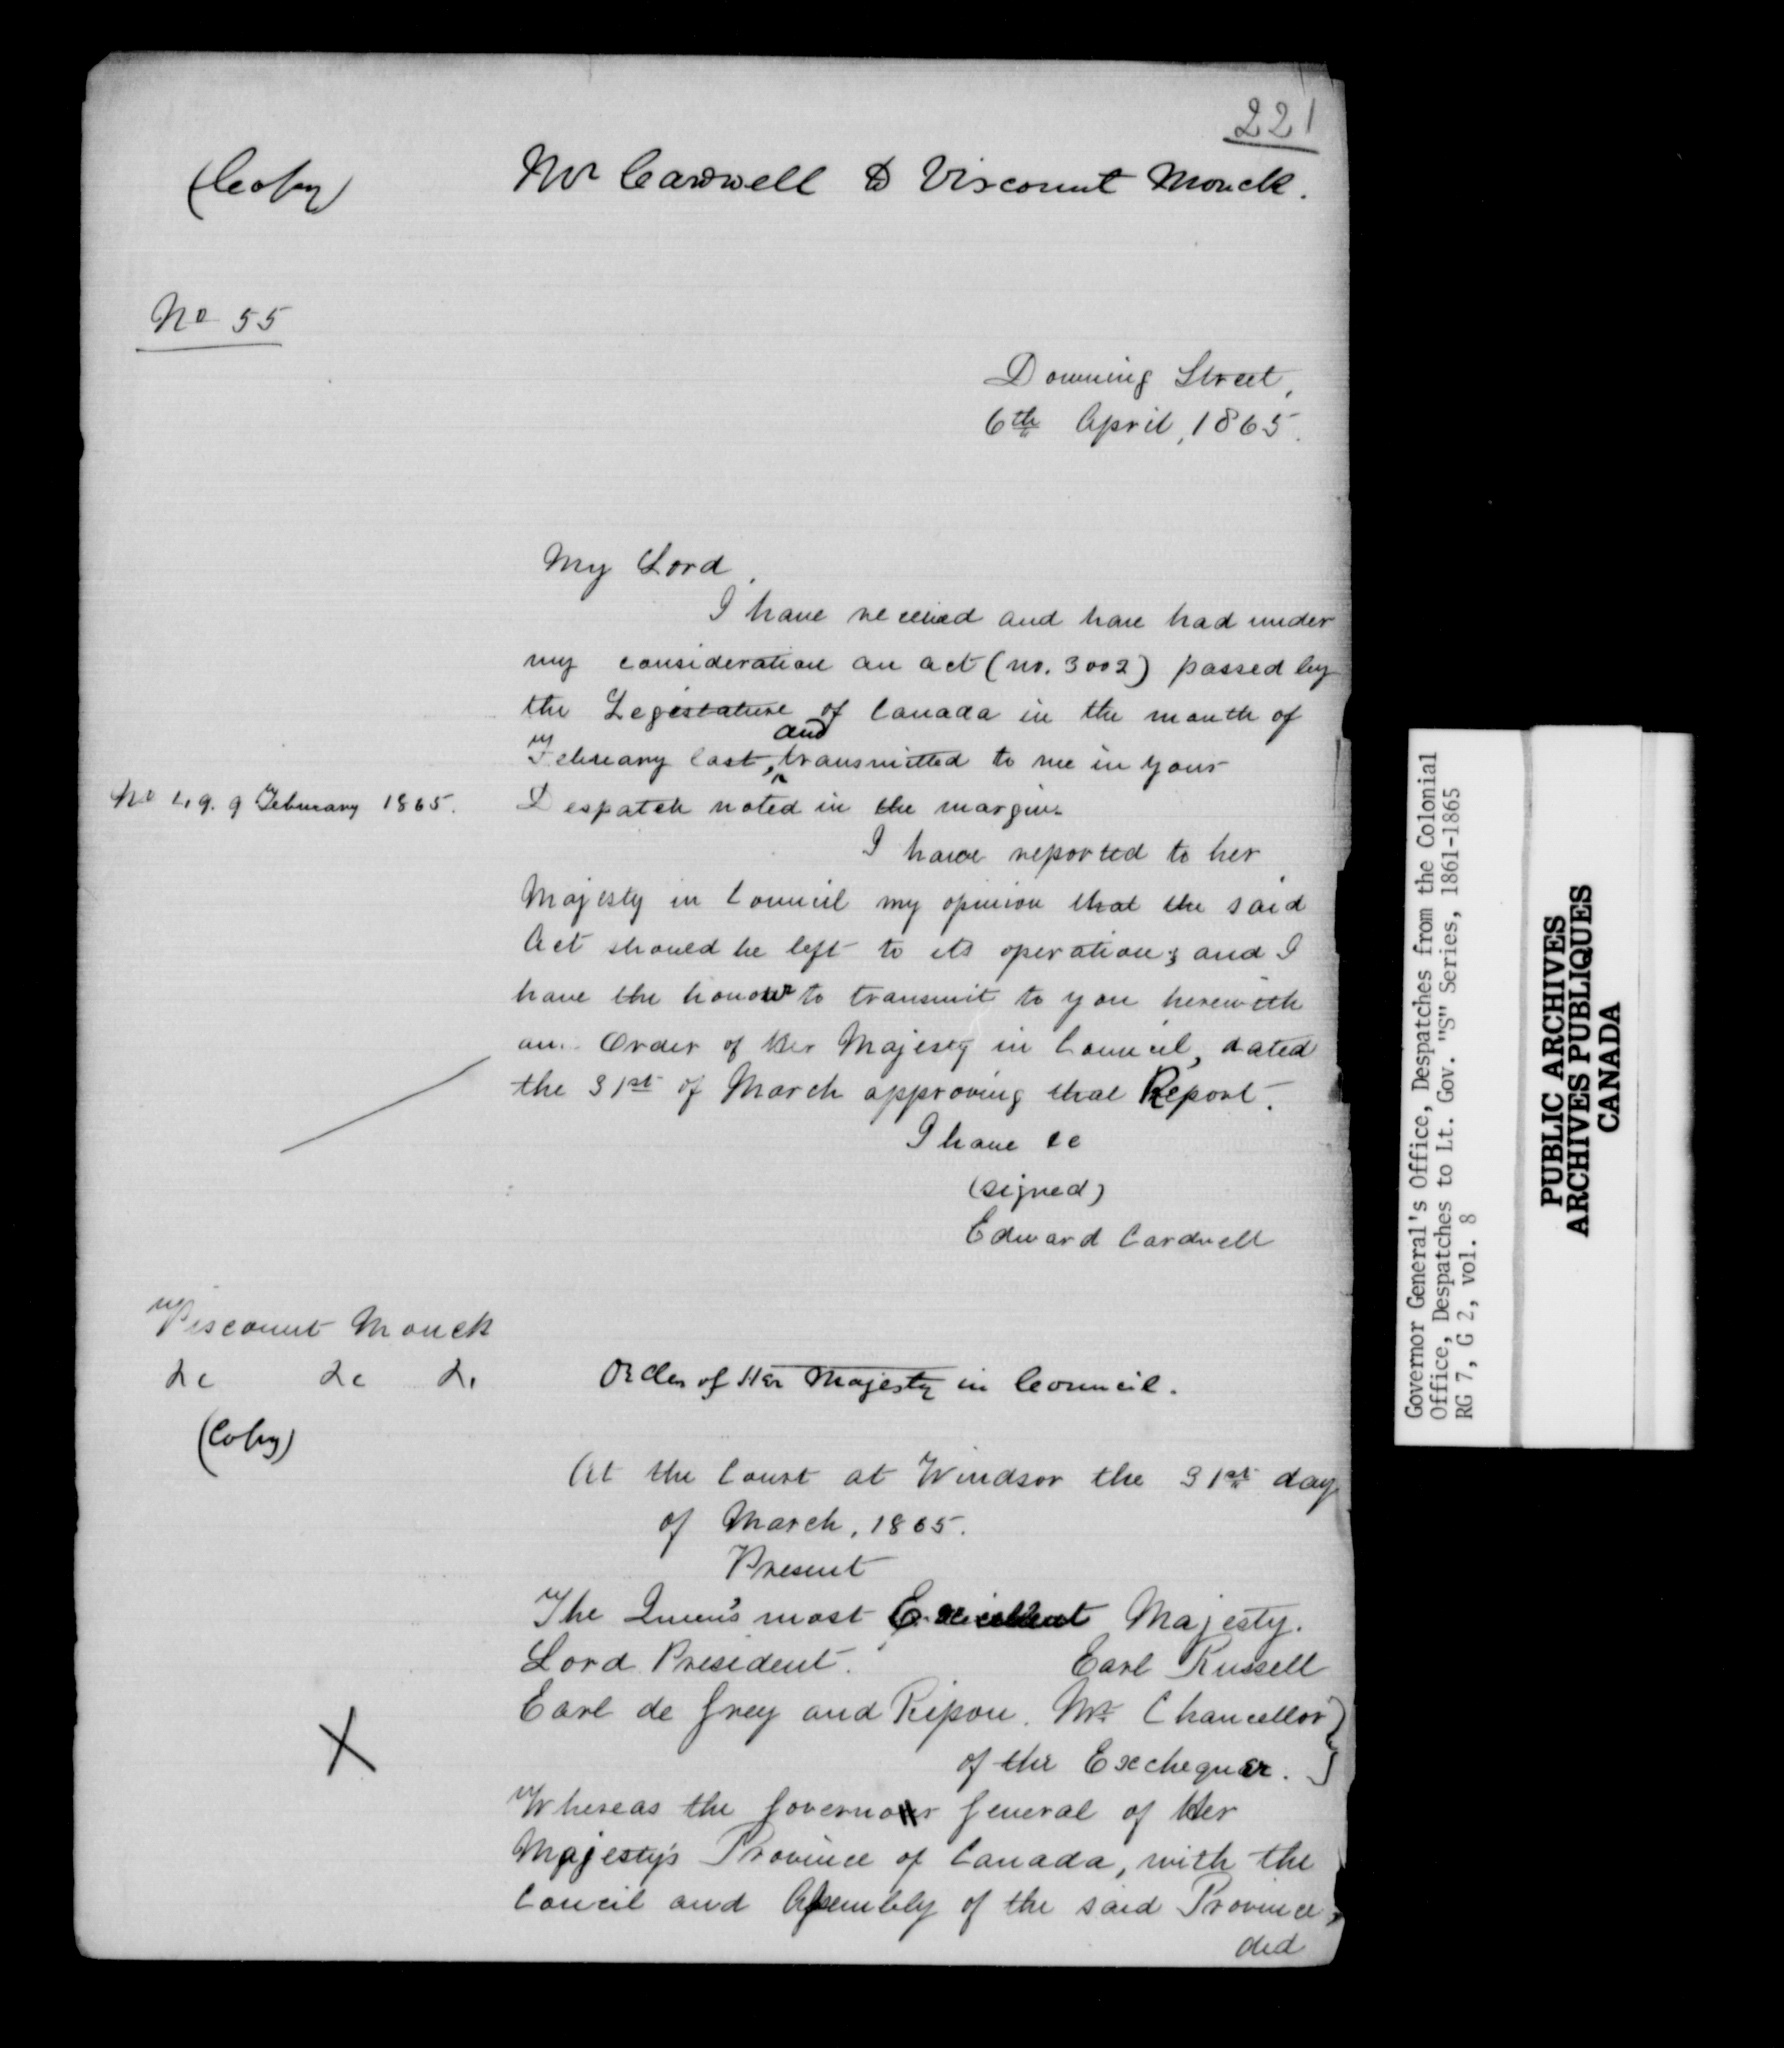 221
(Copy)
Mr Cardwell to Viscount Monck.
No 55
Downing Street,
6th April, 1865.
My Lord,
I have received and have had under
my consideration an act (no. 3002) passed by
the Legislature of Canada in the month of
and
February last, transmitted to me in your
No 49. 9 February 1865.
Despatch noted in the margin.
I have reported to her
Majesty in Council my opinion that the said
Act should be left to its operation; and I
have the honour to transmit to you herewith
an Order of Her Majesty in Council, dated
the 31st of March approving that Report.
I have &c
(signed)
Edward Cardwell
Viscount Monck
&c &c &c
Order of Her Majesty in Council.
(Copy)
At the Court at Windsor the 31st day
of March, 1865.
Present
The Queen's most Excellent Majesty.
Lord President. Earl Russell
Earl de Grey and Ripon. Mr. Chancellor
of the Exchequer.
X
Whereas the Governor General of Her
Majesty's Province of Canada, with the
Council and Assembly of the said Province,
did
Governor General's Office, Despatches from the Colonial
Office, Despatches to Lt. Gov. "S" Series, 1861-1865
RG 7, G 2, vol. 8
PUBLIC ARCHIVES
ARCHIVES PUBLIQUES
CANADA